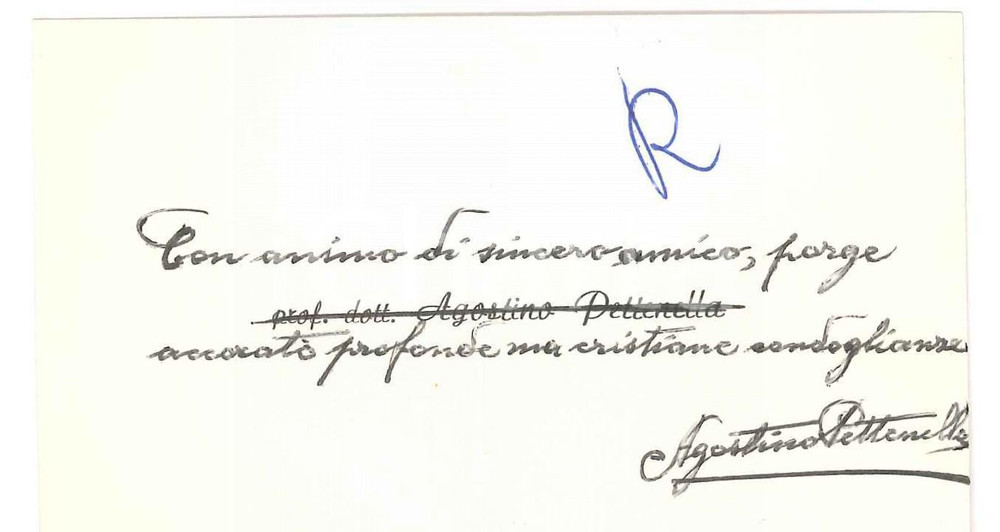 R
Con animo di sincero amico, porge
prof. dott. Agostino Pettenella
accorato profonde ma cristiane condoglianze
Agostino Pettenella